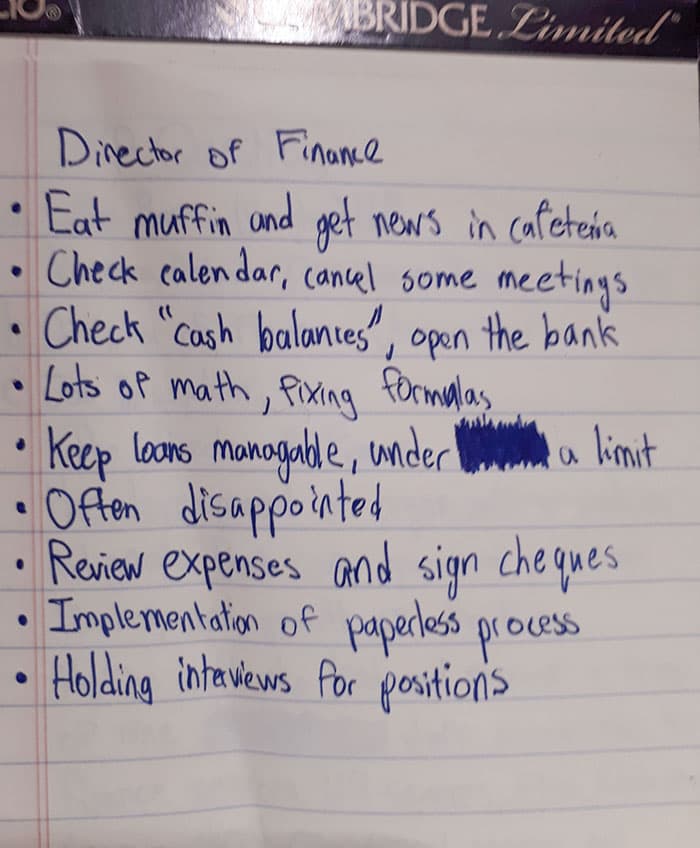 BRIDGE Limited
Director of Finance
• Eat muffin and get news in cafeteria
• Check calendar, cancel some meetings
• Check "cash balances", open the bank
• Lots of math, fixing formalas
• Keep loans managable, under a limit
• Often disappointed
• Review expenses and sign cheques
• Implementation of paperless process
• Holding interviews for positions